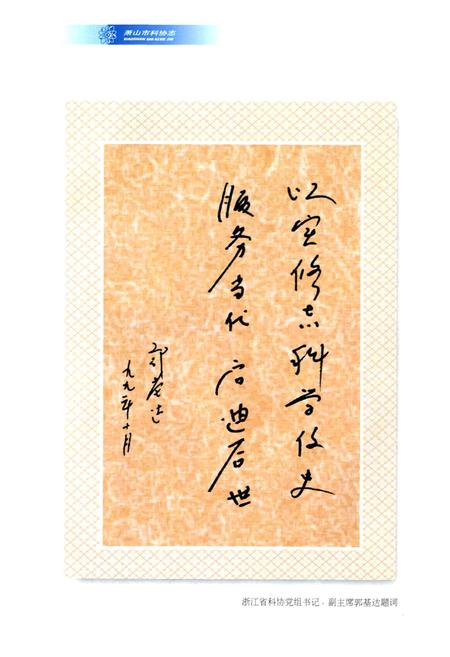 萧山市科协志
XIAOSHAN SHI KEXIE ZHI
以实修志科学修史
服务当代启迪后世
郭基达
一九九二年十月
浙江省科协党组书记、副主席郭基达题词